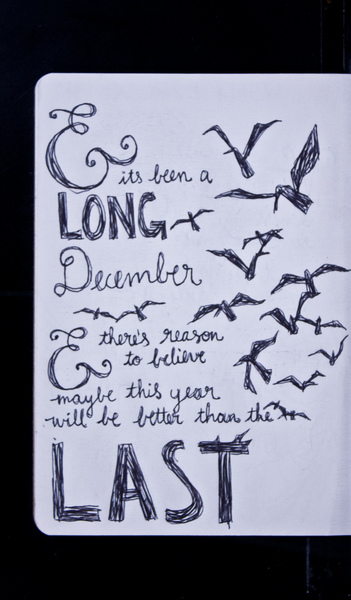 & its been a
LONG
December
& there's reason
to believe
maybe this year
will be better than the
LAST